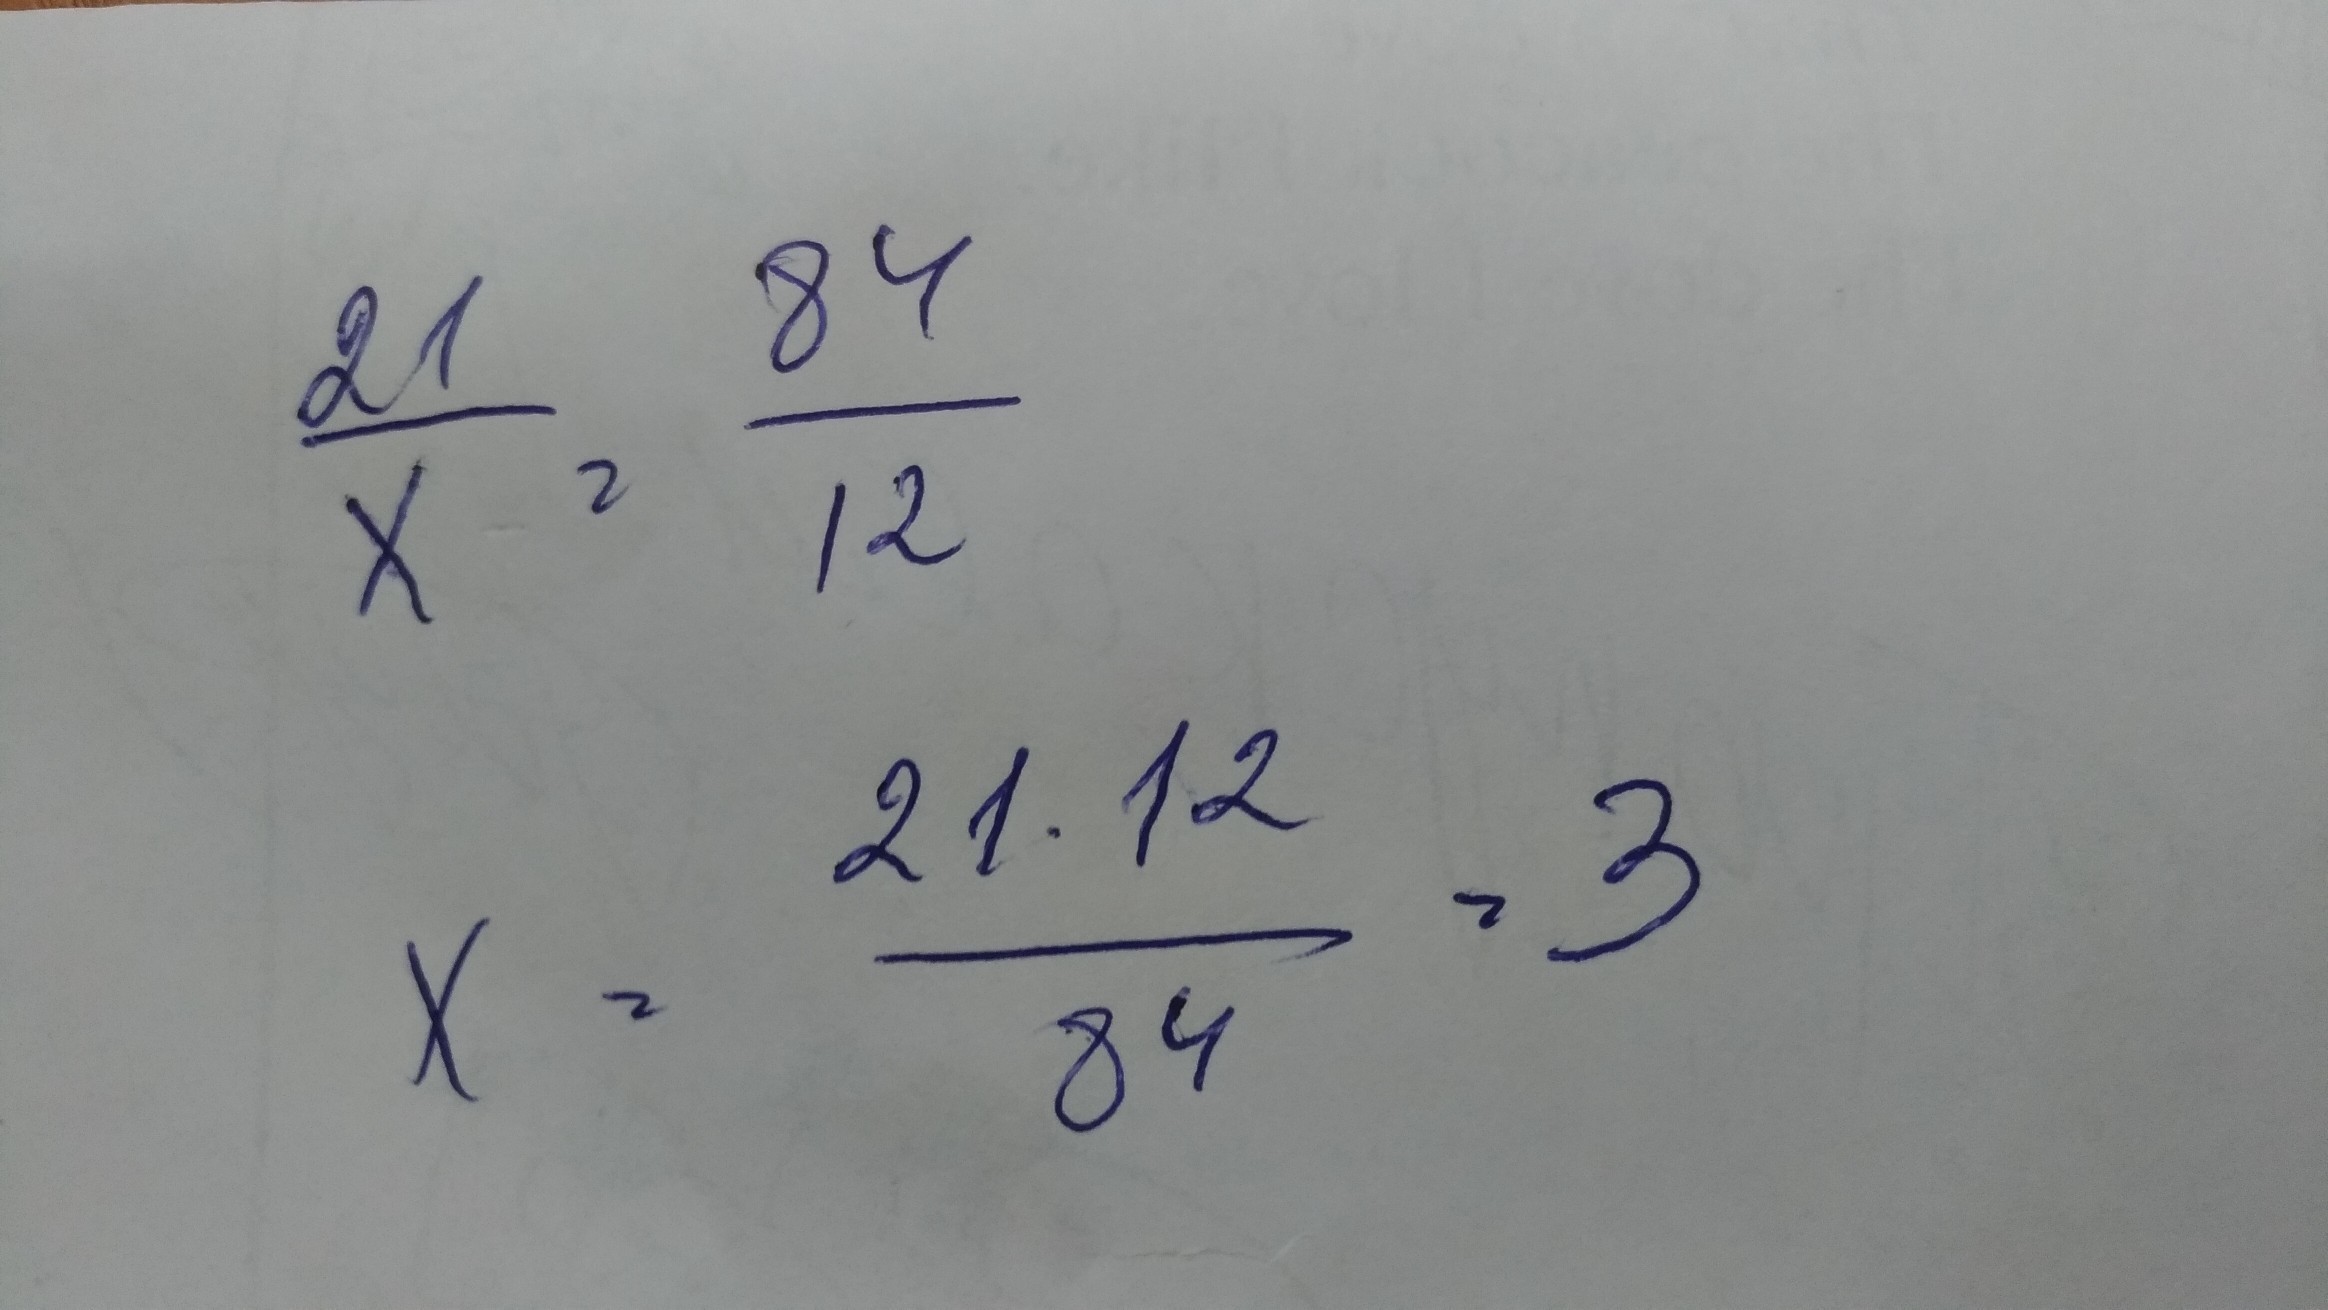 21/x = 84/12
x = 21·12/84 = 3